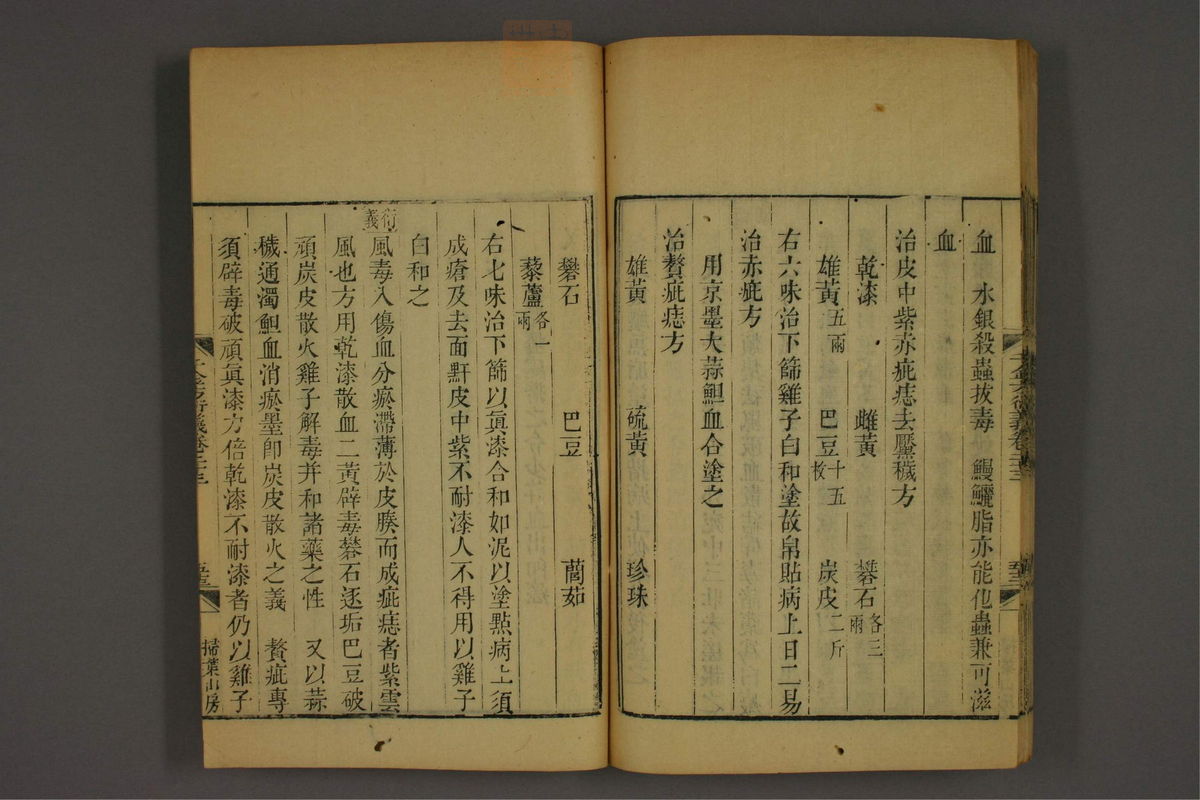 血　水銀殺蟲拔毒　鰻鱺脂亦能化蟲兼可滋
血
治皮中紫赤疵痣去黶穢方
乾漆　雌黃　礬石各三兩
雄黃五兩　巴豆十五枚　炭皮二斤
右六味治下篩雞子白和塗故帛貼病上日二易
治赤疵方
用京墨大蒜䱇血合塗之
治贅疵痣方
雄黃　硫黃　珍珠
礬石　巴豆　藘茹
藜蘆各一兩
右七味治下篩以眞漆合和如泥以塗點病上須
成瘡及去面䵟皮中紫不耐漆人不得用以雞子
白和之
衍義
風毒入傷血分瘀滯薄於皮腠而成疵痣者紫雲
風也方用乾漆散血二黃辟毒礬石逐垢巴豆破
頑炭皮散火雞子解毒并和諸藥之性　又以蒜
穢通濁䱇血消瘀墨卽炭皮散火之義　贅疵專
須辟毒破頑眞漆力倍乾漆不耐漆者仍以雞子
千金方衍義卷二十三
掃葉山房